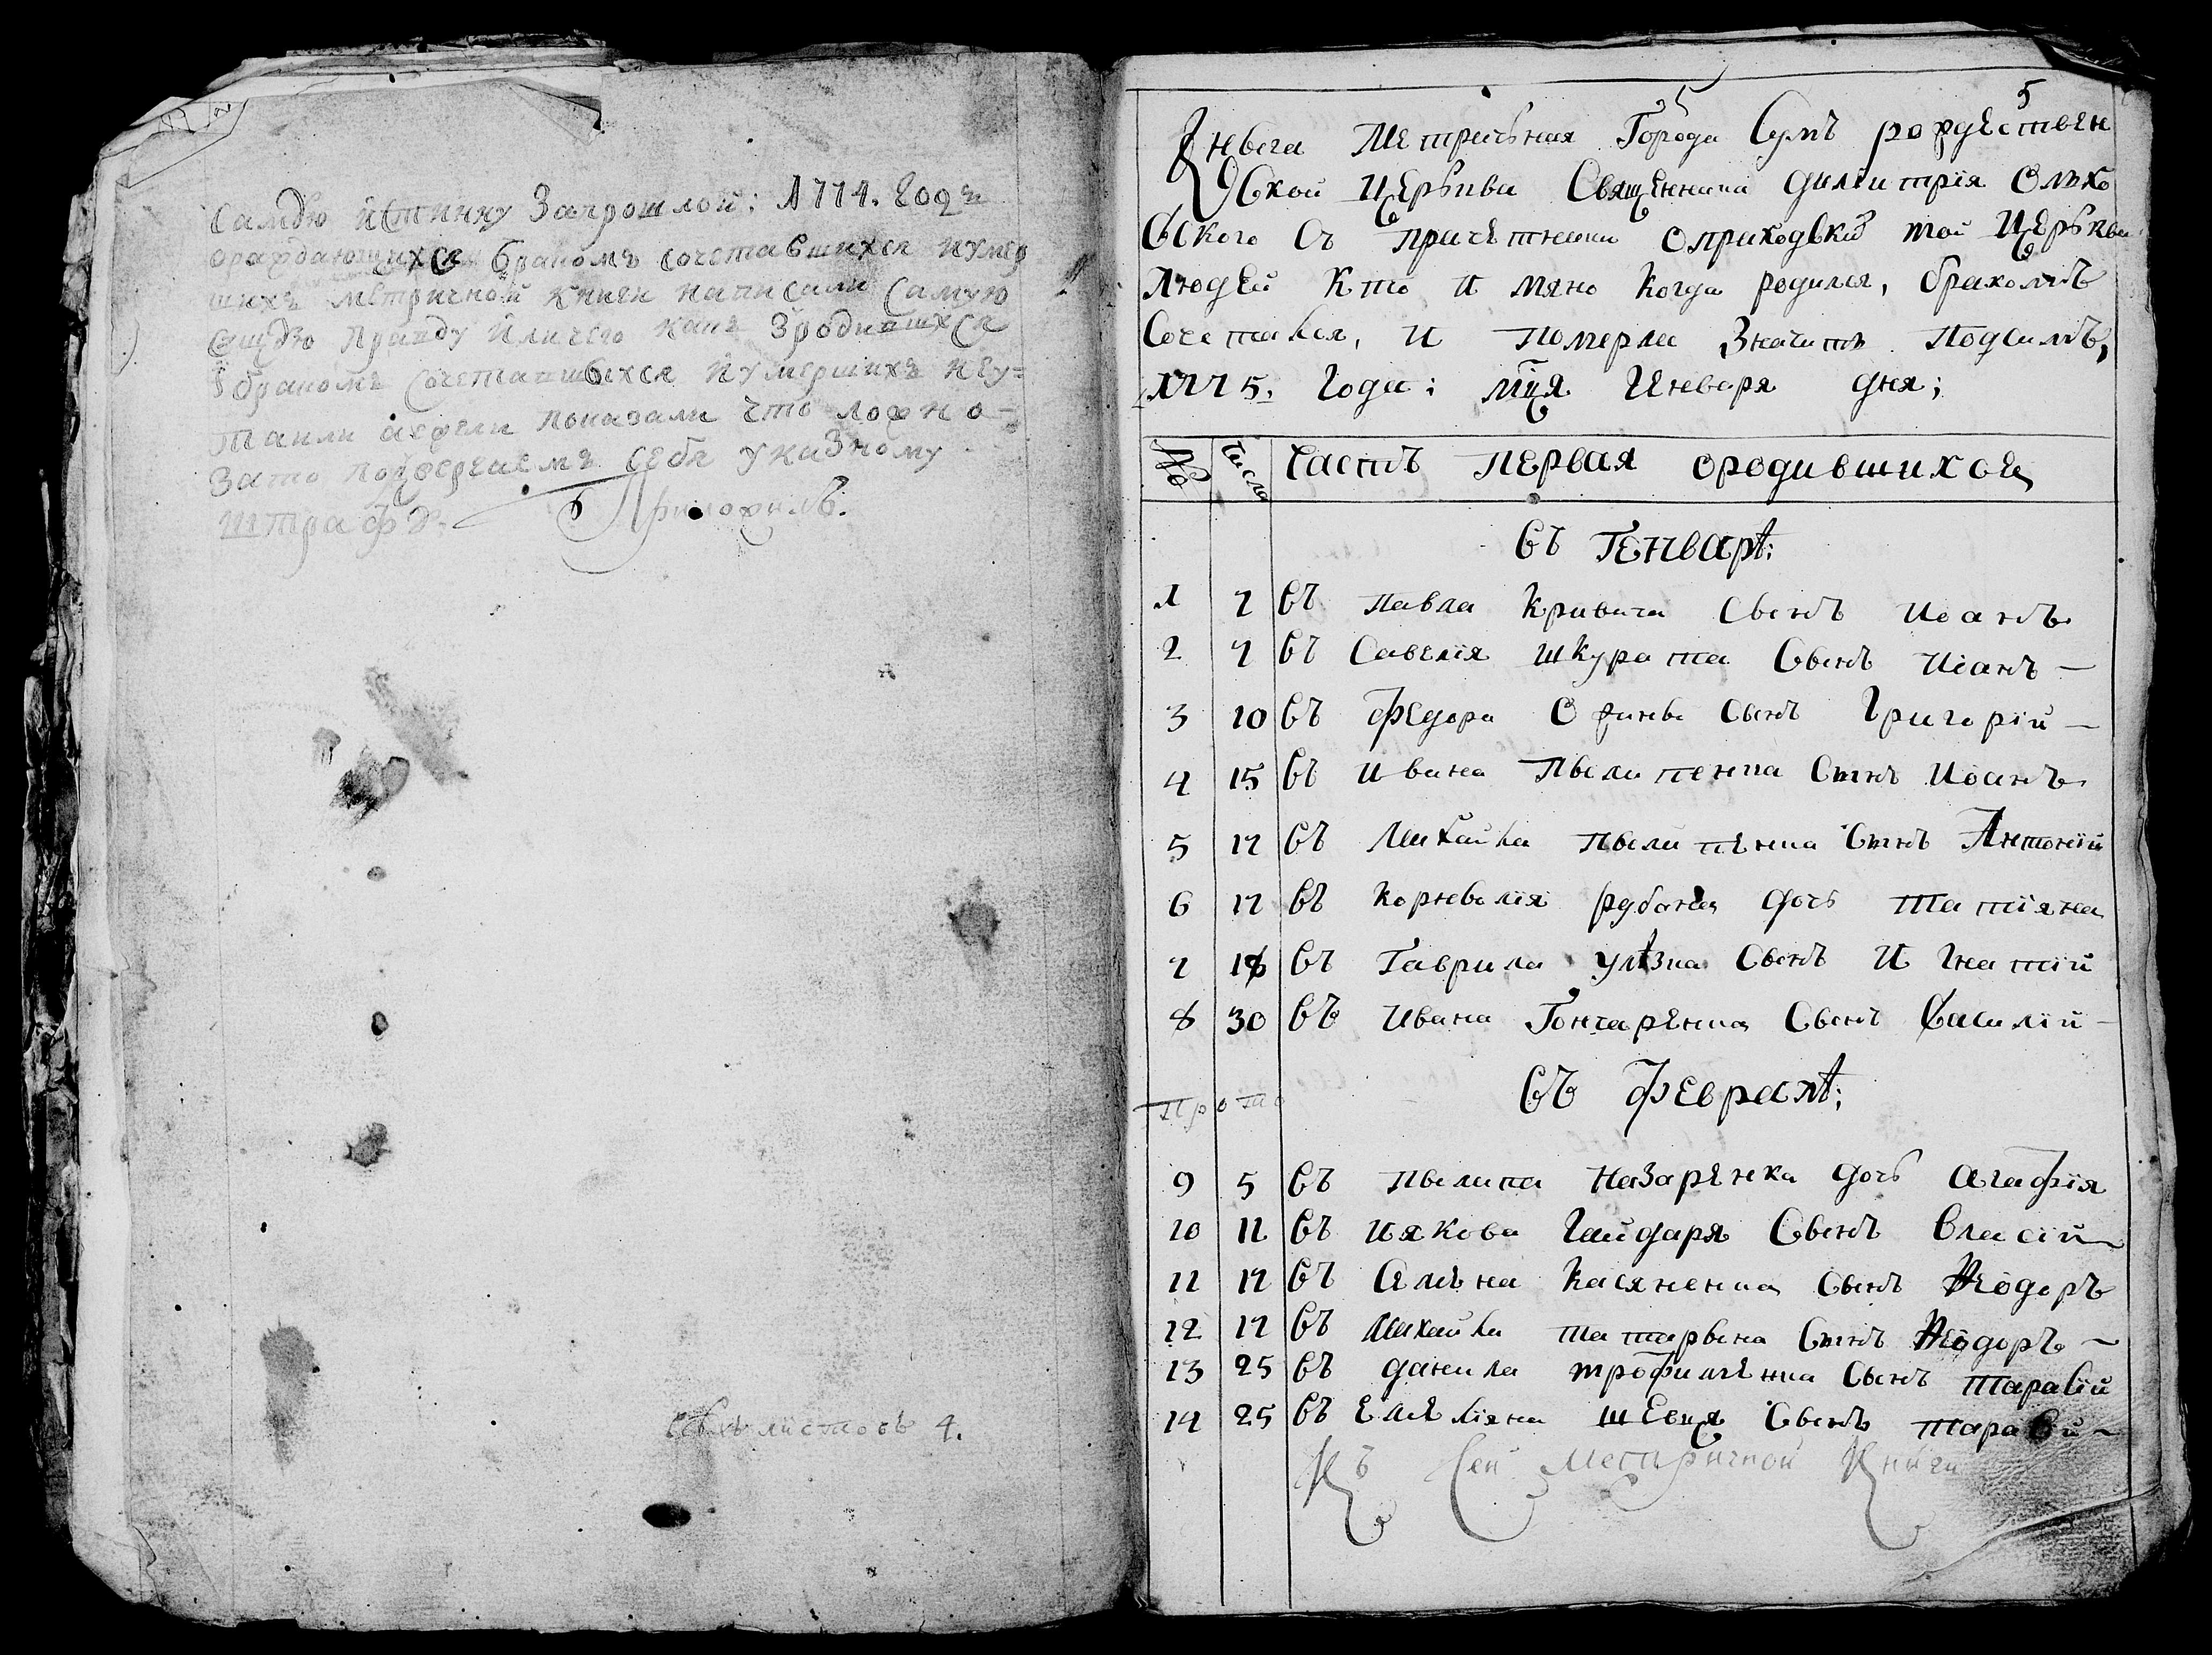 самую истинну Запрошлой: 1774. годъ
ораждающихся бракомъ сочетавшихся иумер
шихъ метричной книги написали самую
сущую правду иличего какъ Зродившхся
бракомъ сочетавшихся иумершихъ неу=
таили аежели показали что ложно
Зато подвергаемъ себя указному
штрафу.
всехъ листовъ 4.
5
Книга Метричная Города Сумъ рождествен
ской Церкви Священника Димитрія Олхо
вского Съ причетники оприходских той Церкви
Людей Кто И мяно Когда родился, бракомъ
Сочетался, И Померле Значитъ Подсимъ,
1775. Года: мця Генваря дня;
№ Числа Часть Первая ородившихся
Въ Генварѣ:
1 7 Въ Павла Кривича Сынъ Иоанъ
2 7 Въ Савелія Шкурата Сынъ Иоанъ —
3 10 Въ Федора Сынъ Григорій —
4 15 Въ Ивана Пылипенка Сынъ Иоанъ
5 17 Въ Михайла Пылипенка Сынъ Антоній
6 17 Въ Корнылія рубана дочь Татіяна
7 18 Въ Гаврила улѣзка Сынъ Игнатій
8 30 Въ Ивана Гончаренка Сынъ Василій —
Въ Февралѣ:
9 5 Въ Пылипа Назаренка дочь Агафія
10 11 Въ Иякова Гайдаря Сынъ Власій
11 17 Въ Касяненка Сынъ Феодоръ
12 17 Въ Михайла Сынъ Феодоръ —
13 25 Въ Данила трофименка Сынъ Тарасій
14 25 Въ Емеліяна Шевця Сынъ Тарасій —
Къ Сей Метричной Книги